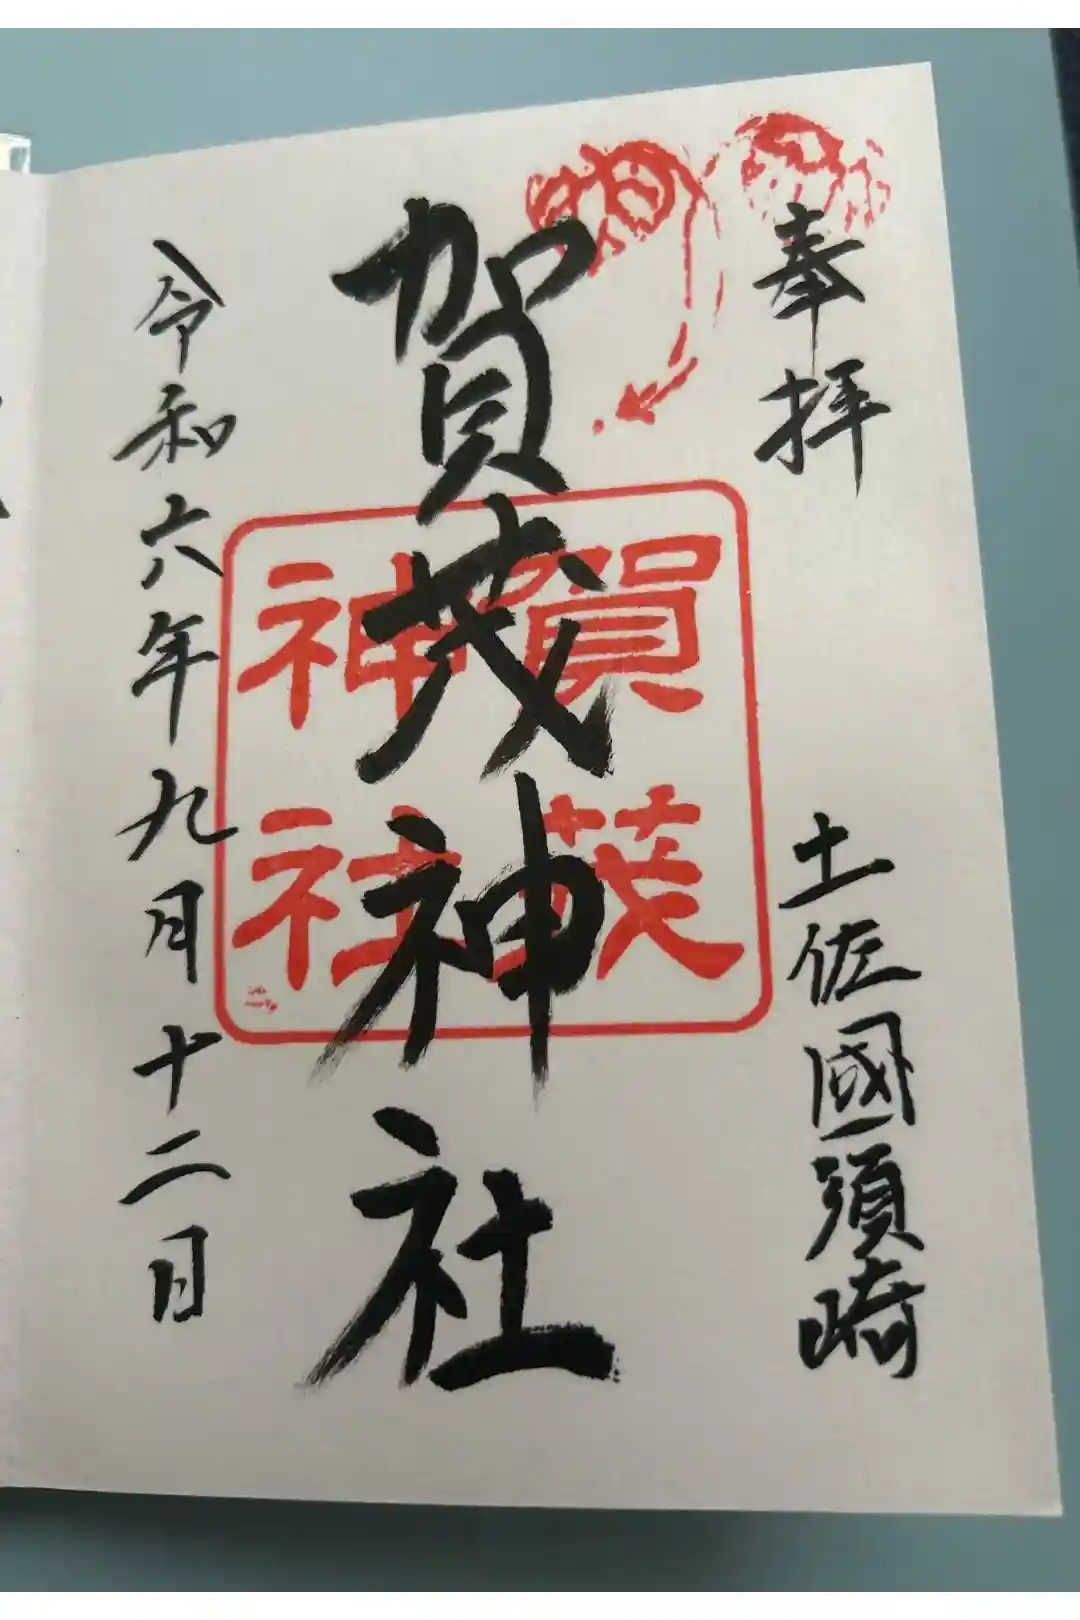 奉拝
土佐國須崎
賀茂神社
賀茂
神社
令和六年九月十二日